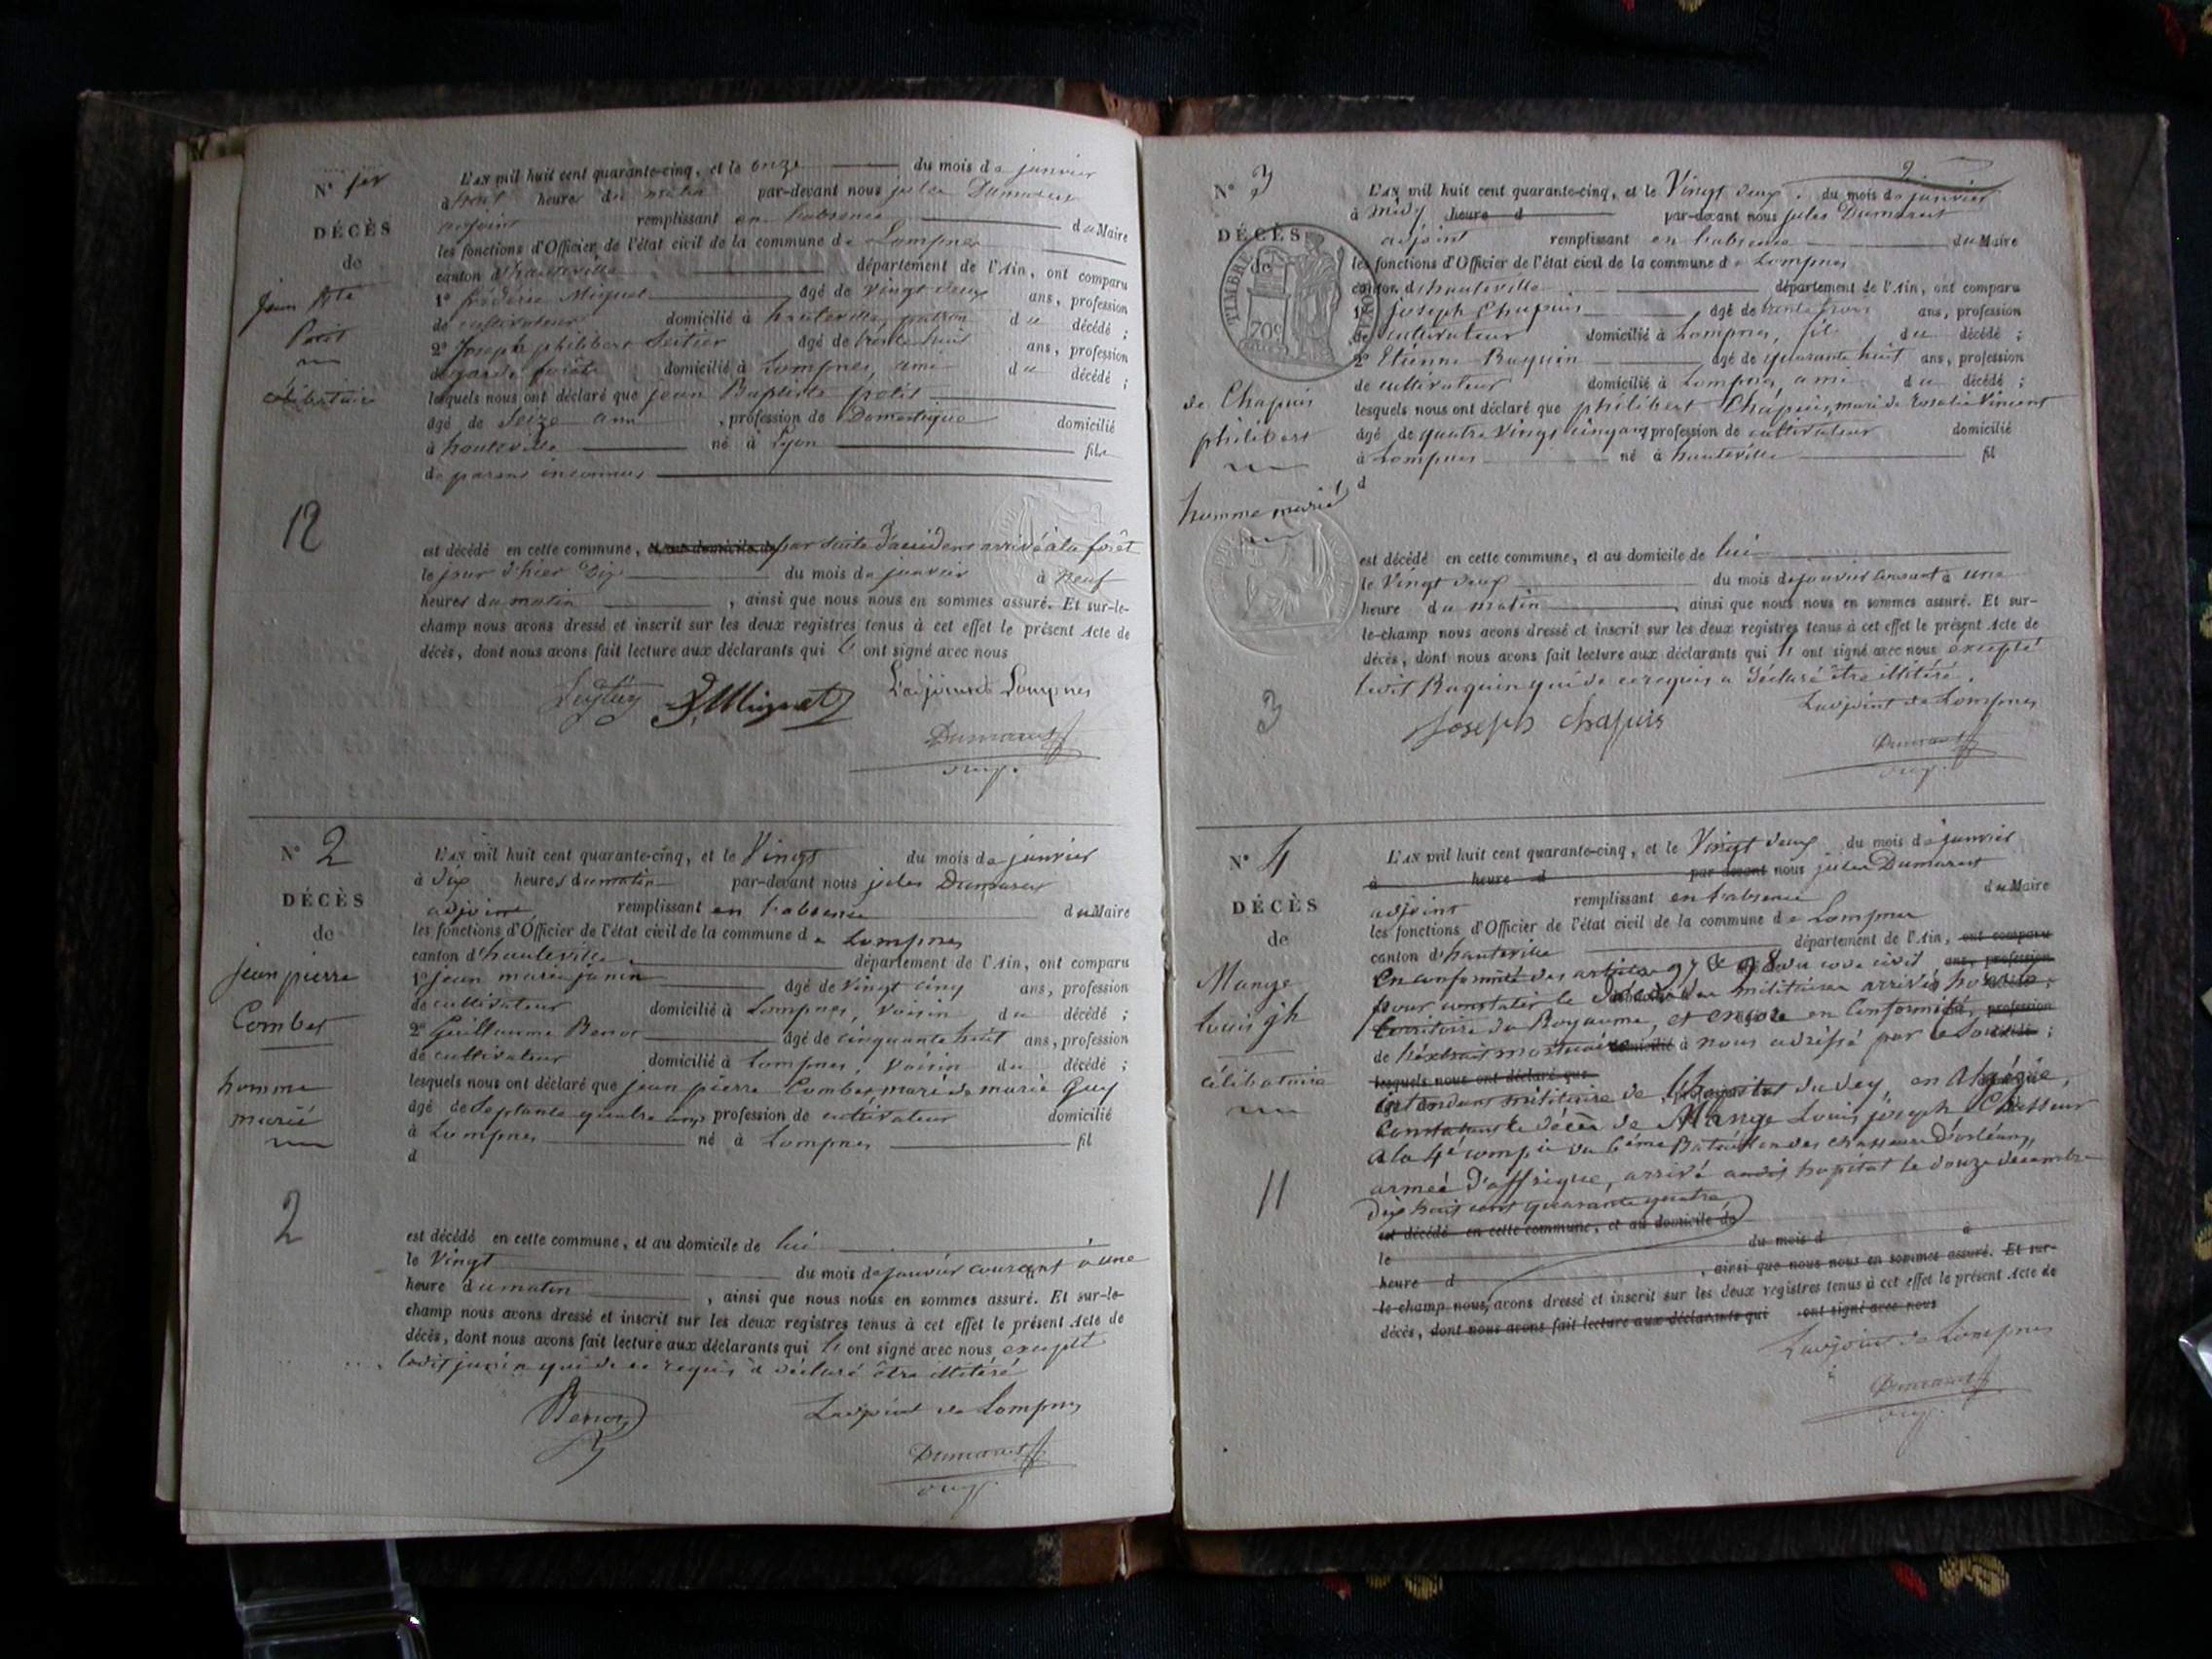 N° 1er
DÉCÈS
de
Jean Bte
Petit
célibataire
12
L'AN mil huit cent quarante-cinq, et le onze du mois de janvier
à heures du matin par-devant nous jules Dumarest
adjoint remplissant en l'absence du Maire
les fonctions d'Officier de l'état civil de la commune de Lompnes
canton d'hauteville département de l'Ain, ont comparu
1° frédéric Miguet âgé de vingt deux ans, profession
de cultivateur domicilié à hauteville, patron du décédé ;
2° Joseph philibert âgé de trente huit ans, profession
de garde forêts domicilié à Lompnes, ami du décédé ;
lesquels nous ont déclaré que jean Baptiste petit
âgé de Seize ans, profession de Domestique domicilié
à hauteville né à Lyon fils
de parens inconnus
est décédé en cette commune, et au domicile de par suite d'accident arrivé à la forêt
le jour d'hier Dix du mois de janvier à neuf
heures du matin, ainsi que nous nous en sommes assuré. Et sur-le-
champ nous avons dressé et inscrit sur les deux registres tenus à cet effet le présent Acte de
décès, dont nous avons fait lecture aux déclarants qui ont signé avec nous
Miguet L'adjoint de Lompnes
Dumarest
N° 2
DÉCÈS
de
jean pierre
Combet
homme
marié
2
L'AN mil huit cent quarante-cinq, et le Vingt du mois de janvier
à dix heures du matin par-devant nous jules Dumarest
adjoint remplissant en l'absence du Maire
les fonctions d'Officier de l'état civil de la commune de Lompnes
canton d'hauteville département de l'Ain, ont comparu
1° jean marie janin âgé de vingt cinq ans, profession
de cultivateur domicilié à Lompnes, voisin du décédé ;
2° Guillaume Benoi âgé de cinquante huit ans, profession
de cultivateur domicilié à Lompnes, voisin du décédé ;
lesquels nous ont déclaré que jean pierre Combet, mari de marie Guy
âgé de Septante quatre ans profession de cultivateur domicilié
à Lompnes né à Lompnes fil
d
est décédé en cette commune, et au domicile de lui
le Vingt du mois de janvier courant à une
heure du matin, ainsi que nous nous en sommes assuré. Et sur-le-
champ nous avons dressé et inscrit sur les deux registres tenus à cet effet le présent Acte de
décès, dont nous avons fait lecture aux déclarants qui ont signé avec nous excepté
ledit janin qui de ce requis a déclaré être illitéré
L'adjoint de Lompnes
Dumarest
2
N° 3
DÉCÈS
de
TIMBRE ROYAL
70c
de Chapuis
philibert
homme marié
3
L'AN mil huit cent quarante-cinq, et le Vingt deux du mois de janvier
à midy heure d par-devant nous jules Dumarest
adjoint remplissant en l'absence du Maire
les fonctions d'Officier de l'état civil de la commune de Lompnes
canton d'hauteville département de l'Ain, ont comparu
1° joseph Chapuis âgé de trente trois ans, profession
de cultivateur domicilié à Lompnes, fils du décédé ;
2° Etienne Raquin âgé de quarante huit ans, profession
de cultivateur domicilié à Lompnes, ami du décédé ;
lesquels nous ont déclaré que philibert Chapuis, mari de Rosalie Vincent
âgé de quatre vingt cinq ans profession de cultivateur domicilié
à Lompnes né à hauteville fil
d
est décédé en cette commune, et au domicile de lui
le Vingt deux du mois de janvier courant à une
heure du matin, ainsi que nous nous en sommes assuré. Et sur-
le-champ nous avons dressé et inscrit sur les deux registres tenus à cet effet le présent Acte de
décès, dont nous avons fait lecture aux déclarants qui ont signé avec nous excepté
ledit Raquin qui de ce requis a déclaré être illitéré.
Joseph Chapuis
L'adjoint de Lompnes
Dumarest
N° 4
DÉCÈS
de
Mange
Louis jh
célibataire
11
L'AN mil huit cent quarante-cinq, et le Vingt deux du mois de janvier
à heure d par devant nous jules Dumarest
adjoint remplissant en l'absence du Maire
les fonctions d'Officier de l'état civil de la commune de Lompnes
canton d'hauteville département de l'Ain, ont comparu
En conformité des articles 97 & 98 du code civil ans, profession
pour constater le décès des militaires arrivés hors le
territoire du Royaume, et encore en conformité, profession
de l'extrait mortuaire domicilié à nous adressé par le Sous
lesquels nous ont déclaré que
intendant militaire de l'hopital du dey, en Algérie,
Constatant le décès de Mange Louis joseph Chasseur
à la 4e compie du 6ème Bataillon des chasseurs D'orléans,
armée d'affrique, arrivé audit hopital le douze décembre
dix huit cent quarante quatre
est décédé en cette commune, et au domicile de
le du mois d à
heure d, ainsi que nous nous en sommes assuré. Et sur-
le-champ nous avons dressé et inscrit sur les deux registres tenus à cet effet le présent Acte de
décès, dont nous avons fait lecture aux déclarants qui ont signé avec nous
L'adjoint de Lompnes
Dumarest